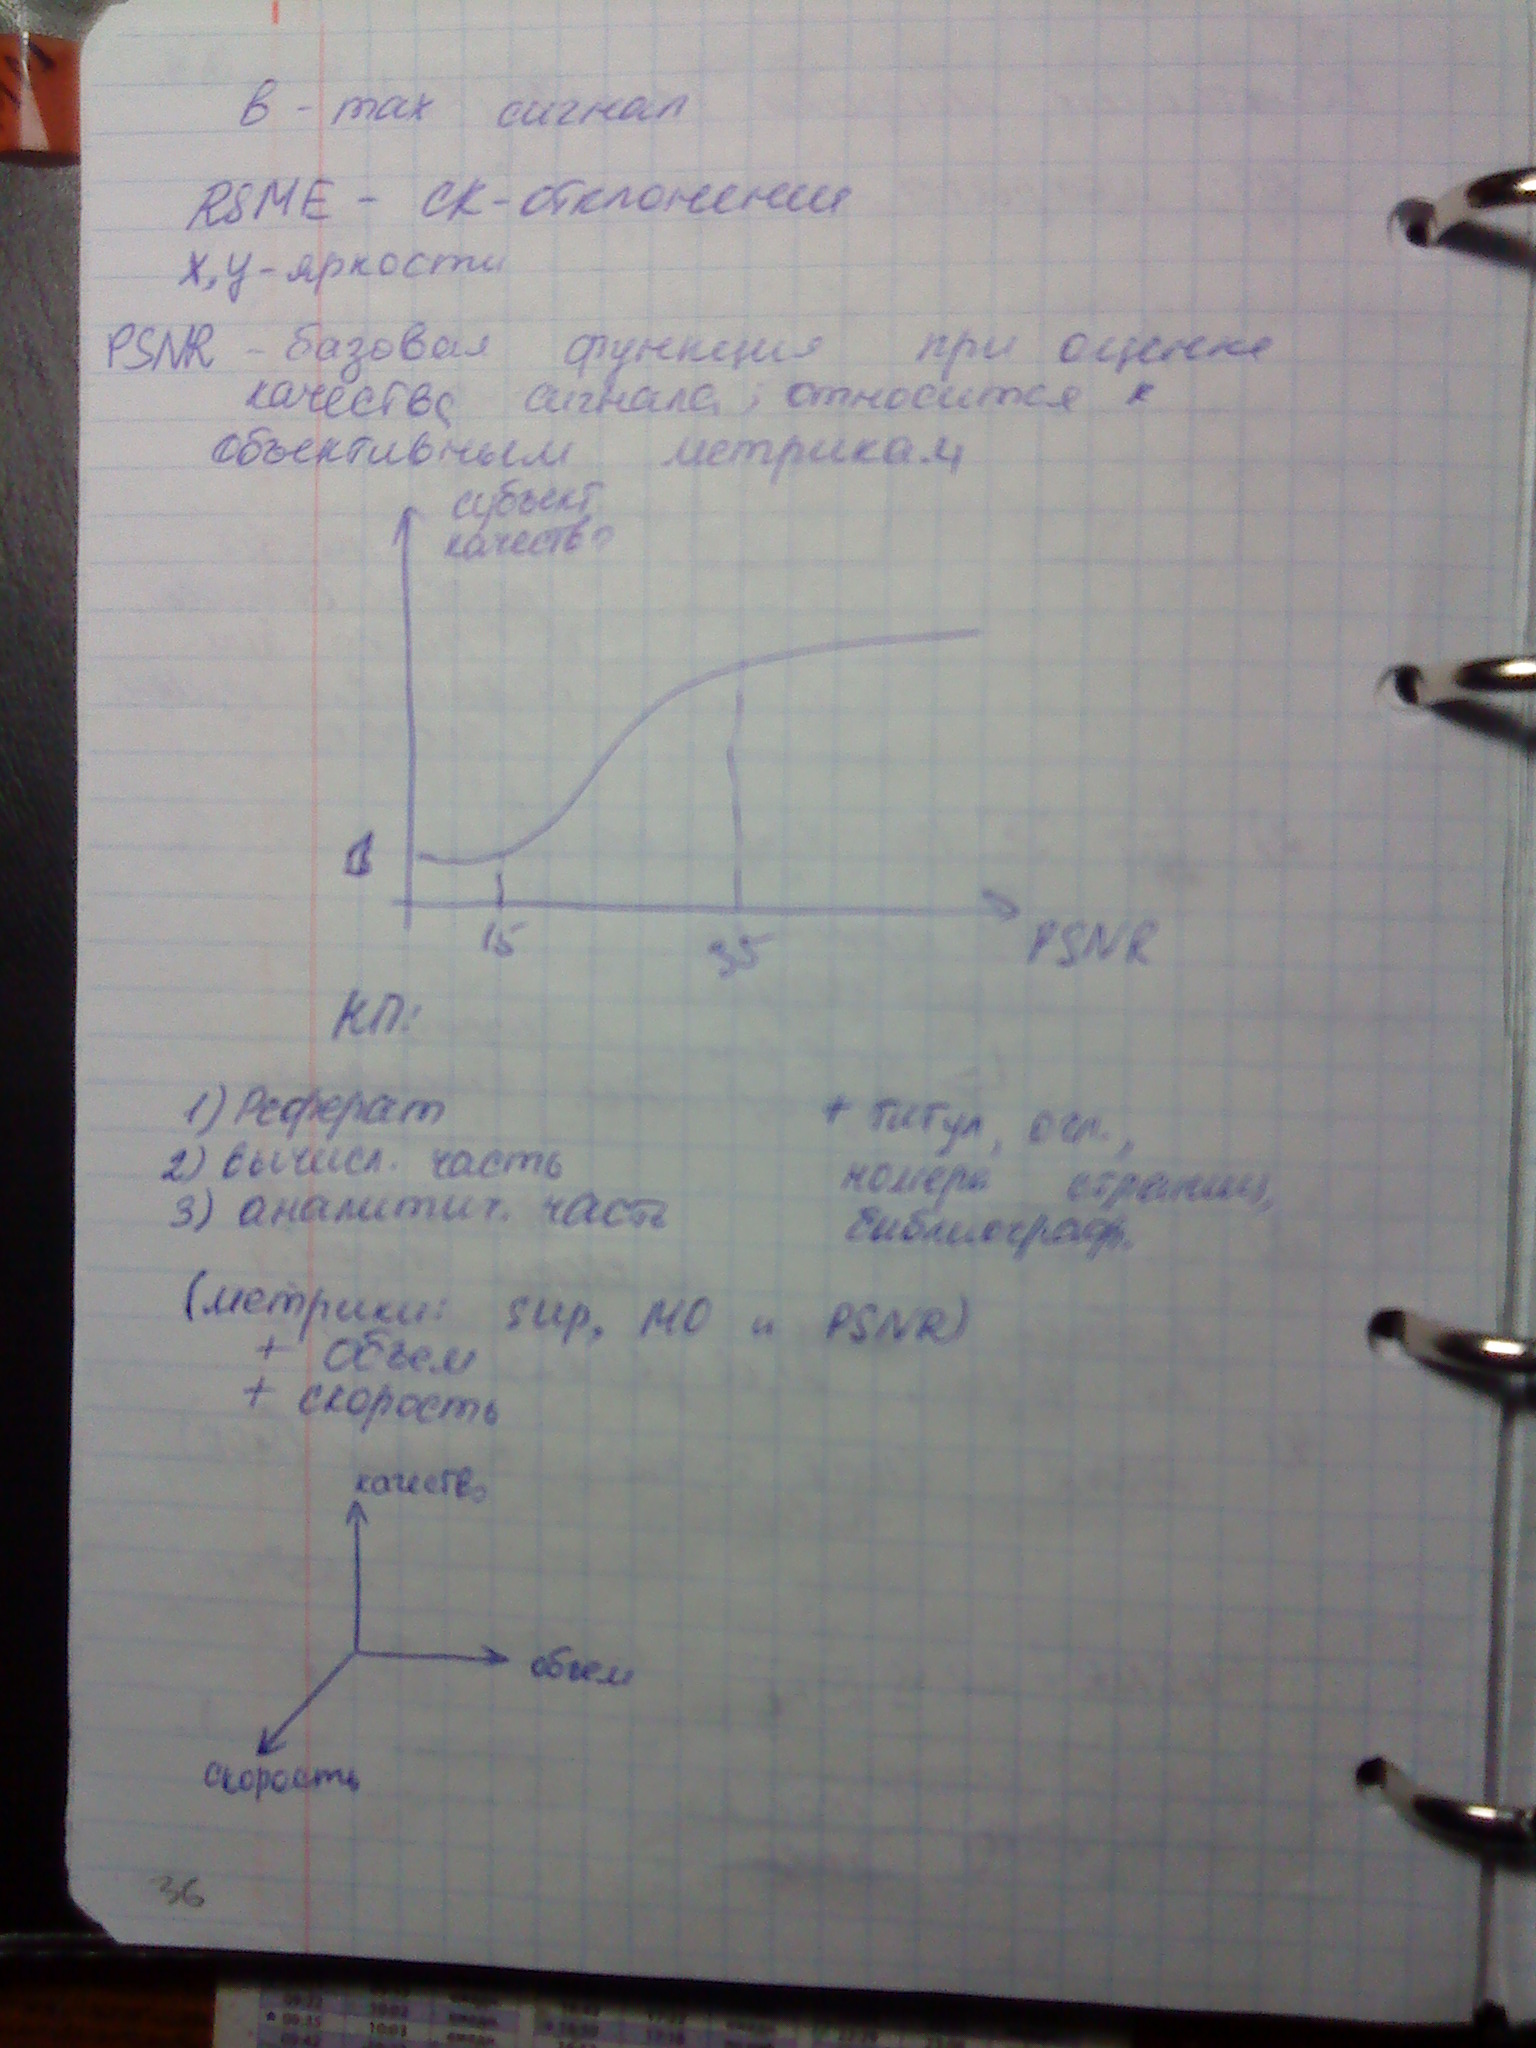 B - max сигнал
RSME - СК-отклонение
x, y - яркости
PSNR - базовая функция при оценке
качества сигнала; относится к
объективным метрикам
субъект.
качество
1
15
35
PSNR
КП:
1) Реферат
2) вычисл. часть
3) аналитич. часть
+ титул, огл.,
номера страниц,
библиограф.
(метрики: sup, МО и PSNR)
+ объем
+ скорость
качество
объем
скорость
36
09:35
10:03